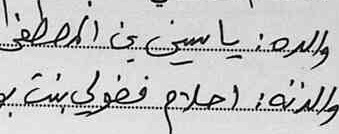 والده: ياسين بن المصطفى
والدته: احلام فضولي بنت